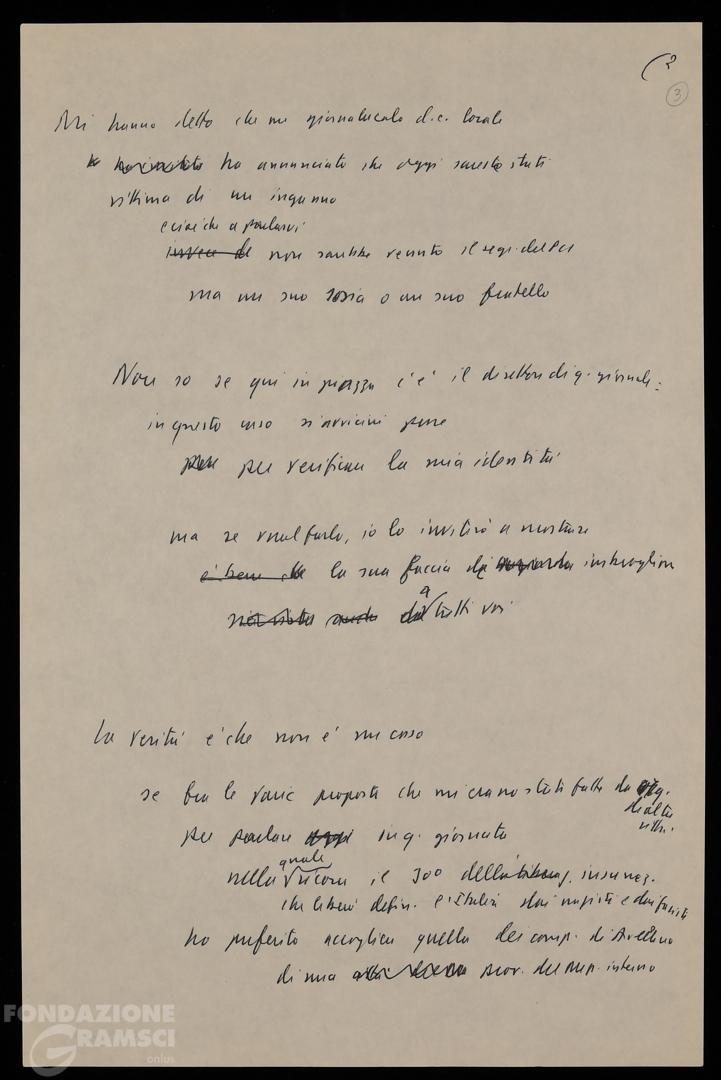 (2
3
Mi hanno detto che un giornalucolo d.c. locale
ha annunciato che oggi sareste stati
vittima di un inganno
e cioè che a parlarvi
invece di non sarebbe venuto il segr. del PCI
ma un suo sosia o un suo fratello
Non so se qui in piazza c'è il direttore di q. giornale:
in questo caso s'avvicini pure
per per verificare la mia identità
ma se vuol farlo, io lo inviterò a mostrare
è bene che la sua faccia di imbroglione
a
tutti voi
La verità è che non è un caso
se fra le varie proposte che mi erano state fatte da
di altre
per parlare oggi in q. giornata
quale
nella ricorre il 30° della insurrez.
che liberò defin. l'Italia dai nazisti e dai fascisti
ho preferito accogliere quella dei comp. di Avellino
di una prov. del Mep. interno
FONDAZIONE
GRAMSCI
onlus